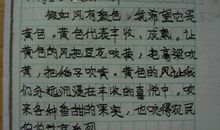 假如风有颜色,我希望它是
黄色。黄色代表丰收、成熟。让
黄色的风把豆荚吹黄,把高粱吹
黄,把柿子吹黄。黄色的风让我
们永远沉浸在丰收的喜悦中。吹
来各种香甜的果实,也吹得农民